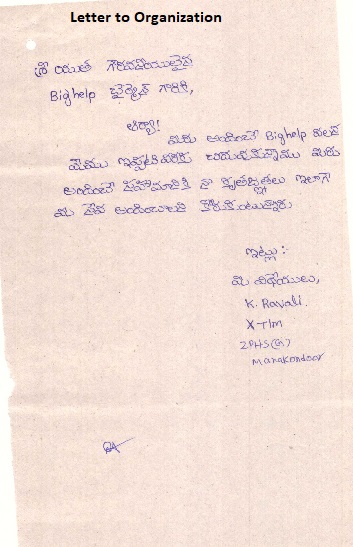 Letter to Organization
శ్రీ యుత గౌరవనీయులైన
Bighelp ఛైర్మెన్ గారికి,
ఆర్యా!
మీరు అందించే Bighelp వలన
మేము ఇప్పటివరకు చదువుకున్నాము మీరు
అందించే సహాయానికి నా కృతజ్ఞతలు ఇలాగే
మీ సేవ అందించాలని కోరుకుంటున్నాను
ఇట్లు:
మీ విధేయులు,
K. Ravali.
X-T/m
ZPHS(G)
Manakondoor